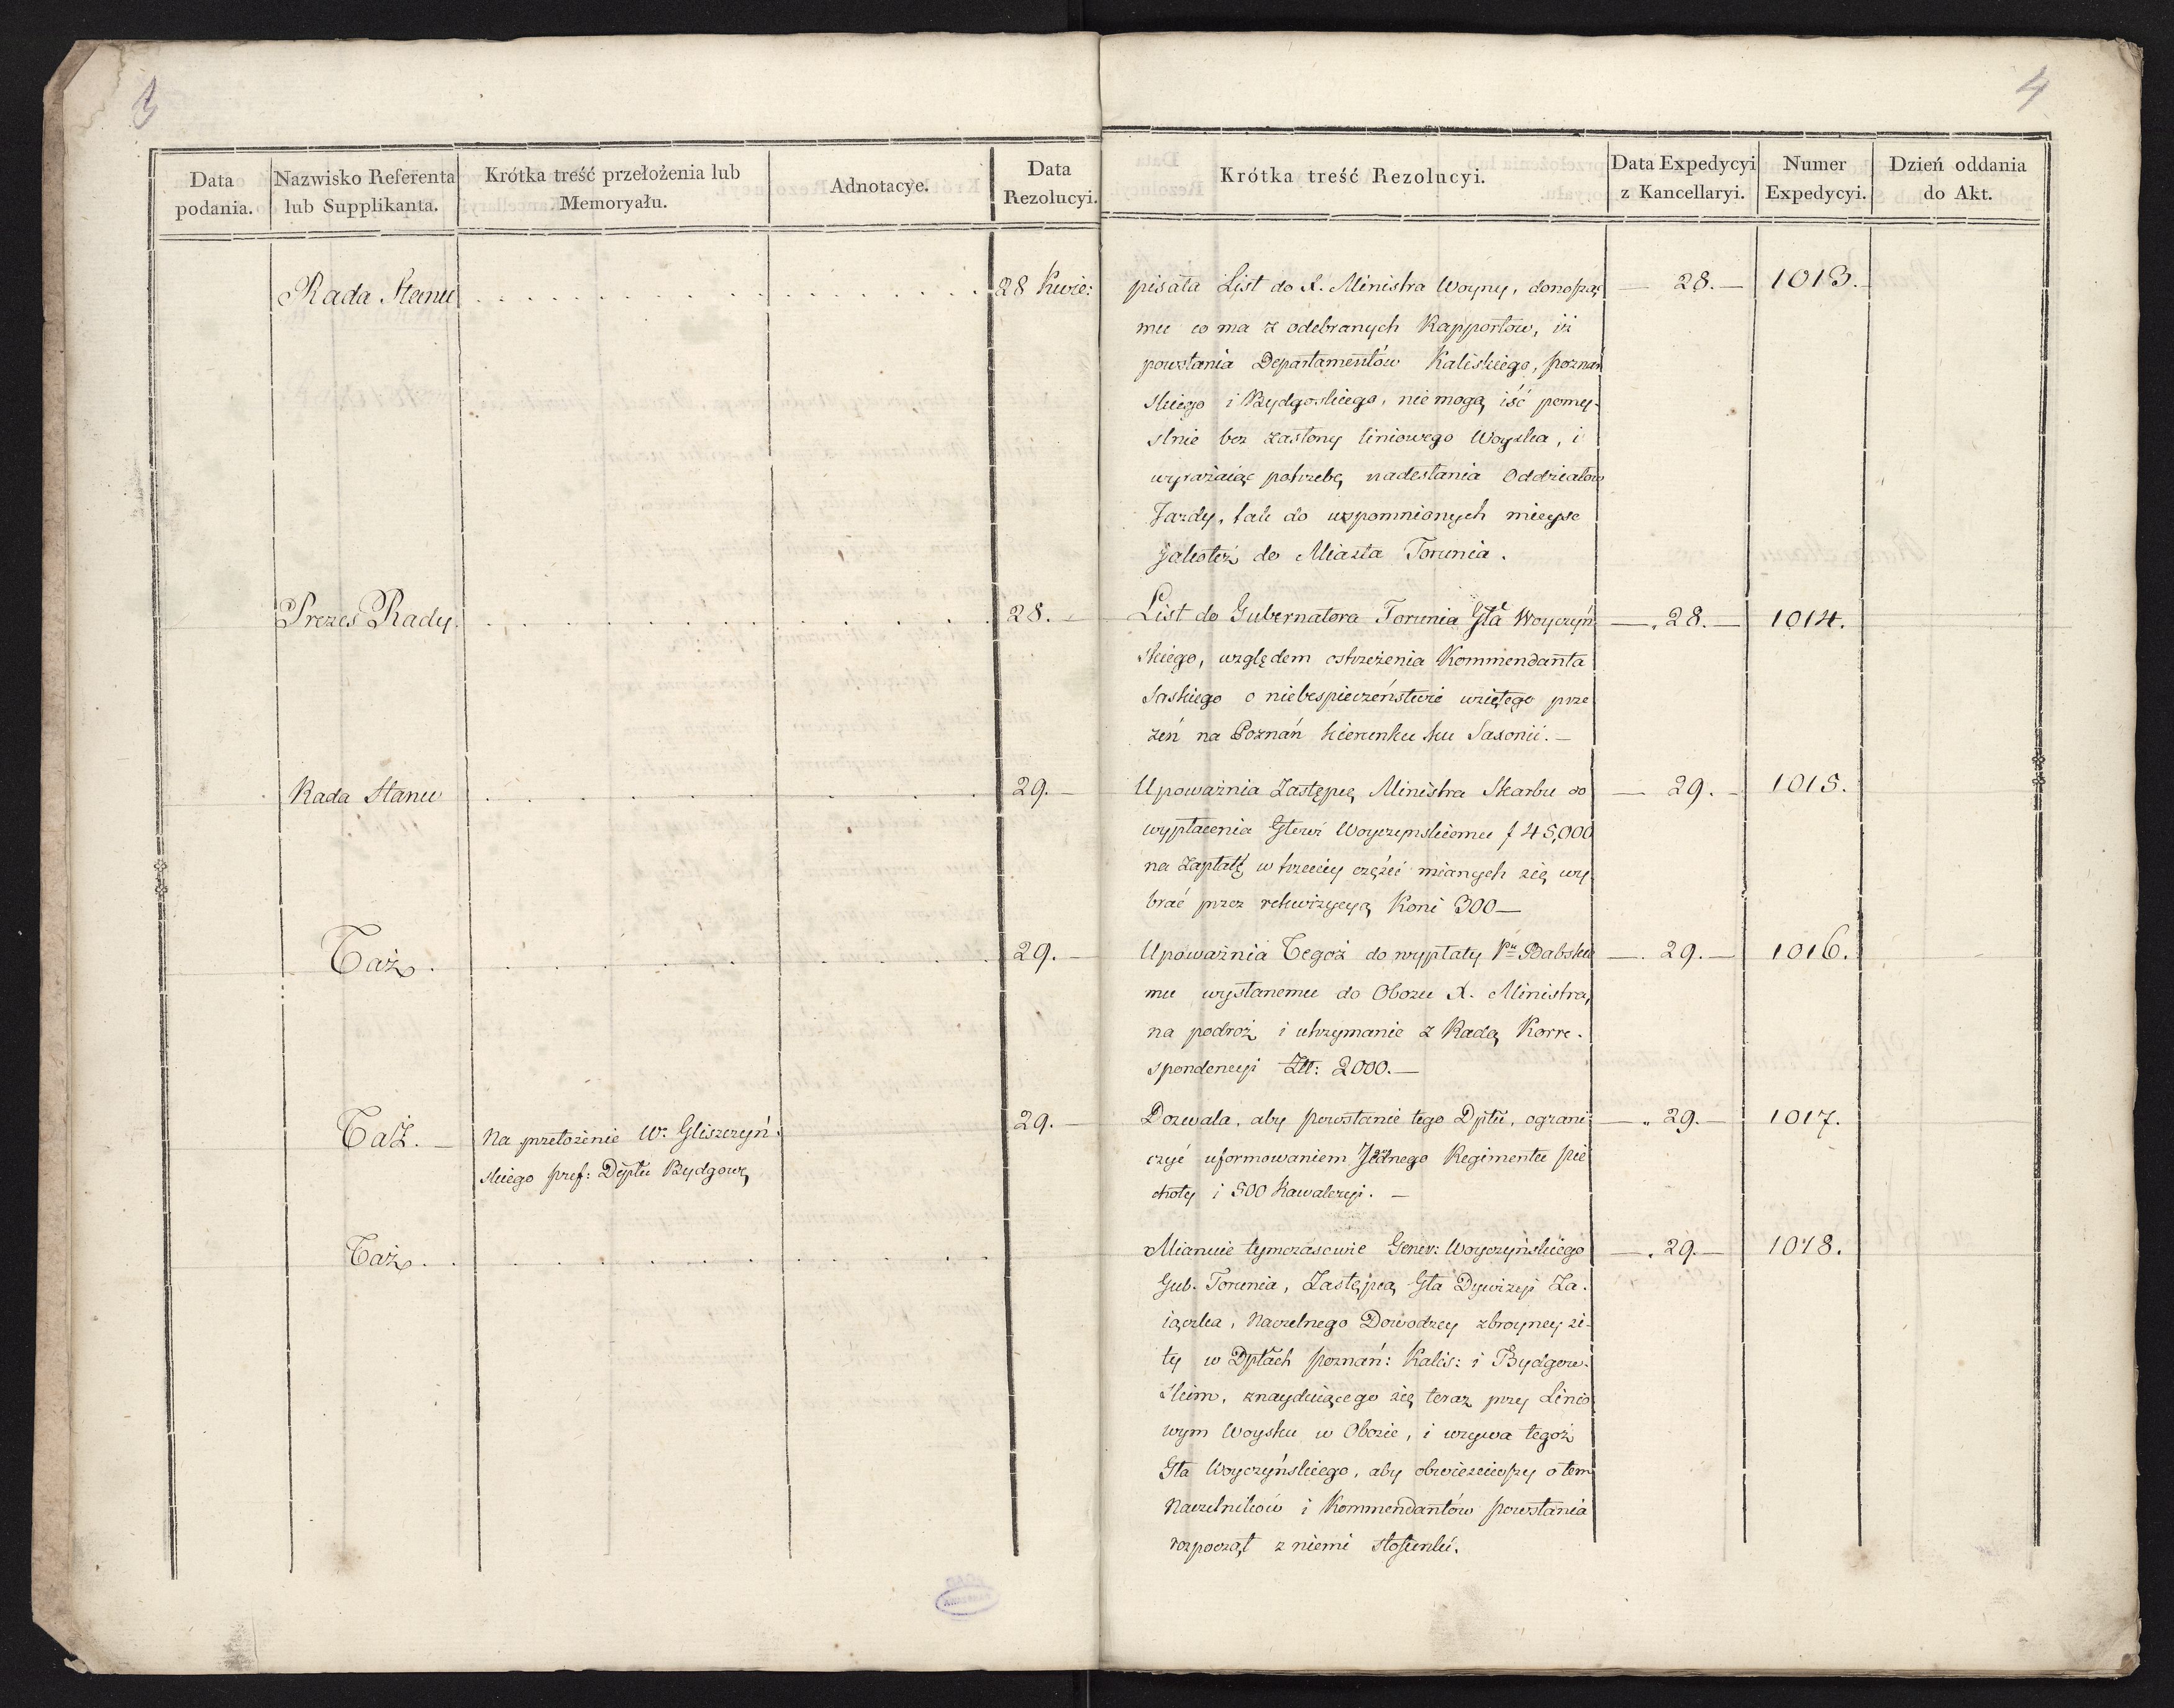 3
4
Data podania.
Nazwisko Referenta lub Supplikanta.
Krótka treść przełożenia lub Memoryału.
Adnotacye.
Data Rezolucyi.
Krótka treść Rezolucyi.
Data Expedycyi z Kancellaryi.
Numer Expedycyi.
Dzień oddania do Akt.
Rada Stanu . . . 28 Kwie:
pisała List do X. Ministra Woyny, donosząc — 28. — 1013.
mu co ma z odebranych Rapportów, iż
powstania Departamentów Kaliskiego, poznań
skiego i Bydgoskiego, nie mogą iść pomy-
slnie bez zasłony liniowego Woyska, i
wyrażaiąc potrzebę nadesłania Oddziałów
Jazdy, tak do wspomnionych mieysc
jakoteż do Miasta Torunia.
Prezes Rady. . . . 28. —
List do Gubernatora Torunia Gła Woyczyń — 28. — 1014.
skiego, względem ostrzeżenia Kommendanta
Saskiego o niebespieczeństwie wziętego prze
zeń na Poznań kierunku ku Saxonii. —
Rada Stanu . . . 29. —
Upoważnia Zastępcę Ministra Skarbu do — 29. — 1015.
wypłacenia Głowi Woyczynskiemu f 45,000
na Zapłatę w trzeciey części mianych się wy
brać przez rekwizycyą Koni 300 —
Taż. . . . 29. —
Upoważnia Tegoż do wypłaty Pu Babsku — 29. — 1016.
mu wysłanemu do Obozu X. Ministra,
na podroż i utrzymanie z Radą Korre-
spondencyi Zł: 2000. —
Taż. — Na przełożenie W. Gliszczyń- 29. —
skiego pref: Dptu Bydgow
Dozwala, aby powstanie tego Dptu, ograni- — 29. — 1017.
czyć uformowaniem Jednego Regimentu pie
choty i 500 Kawaleryi. —
Taż. . . .
Mianuie tymczasowie Gener: Woyczyńskiego — 29. — 1018.
Gub. Torunia, Zastępcą Gła Dywizyi Za-
iączka, Naczelnego Dowodzcy zbroyney si-
ły w Dptach poznań: Kalis: i Bydgow-
skim, znayduiącego się teraz przy Linio
wym Woysku w Obozie, i wzywa tegoż
Gła Woyczyńskiego, aby obwieściwszy o tem
Naczelników i Kommendantów powstania
rozpoczął z niemi stosunki.